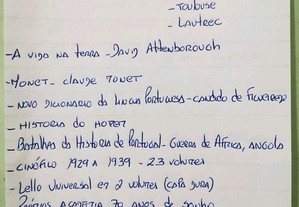 - Toulouse
- Lautrec
- A vida na terra - David Attenborough
- Monet - Claude Monet
- Novo Dicionario da Lingua Portuguesa - Candido de Figueiredo
- Historia do
- Batalhas da Historia de Portugal - Guerra de Africa, Angola
- Cinéfilo 1929 A 1939 - 23 volumes
- Lello Universal em 2 volumes (capa dura)
70 anos de